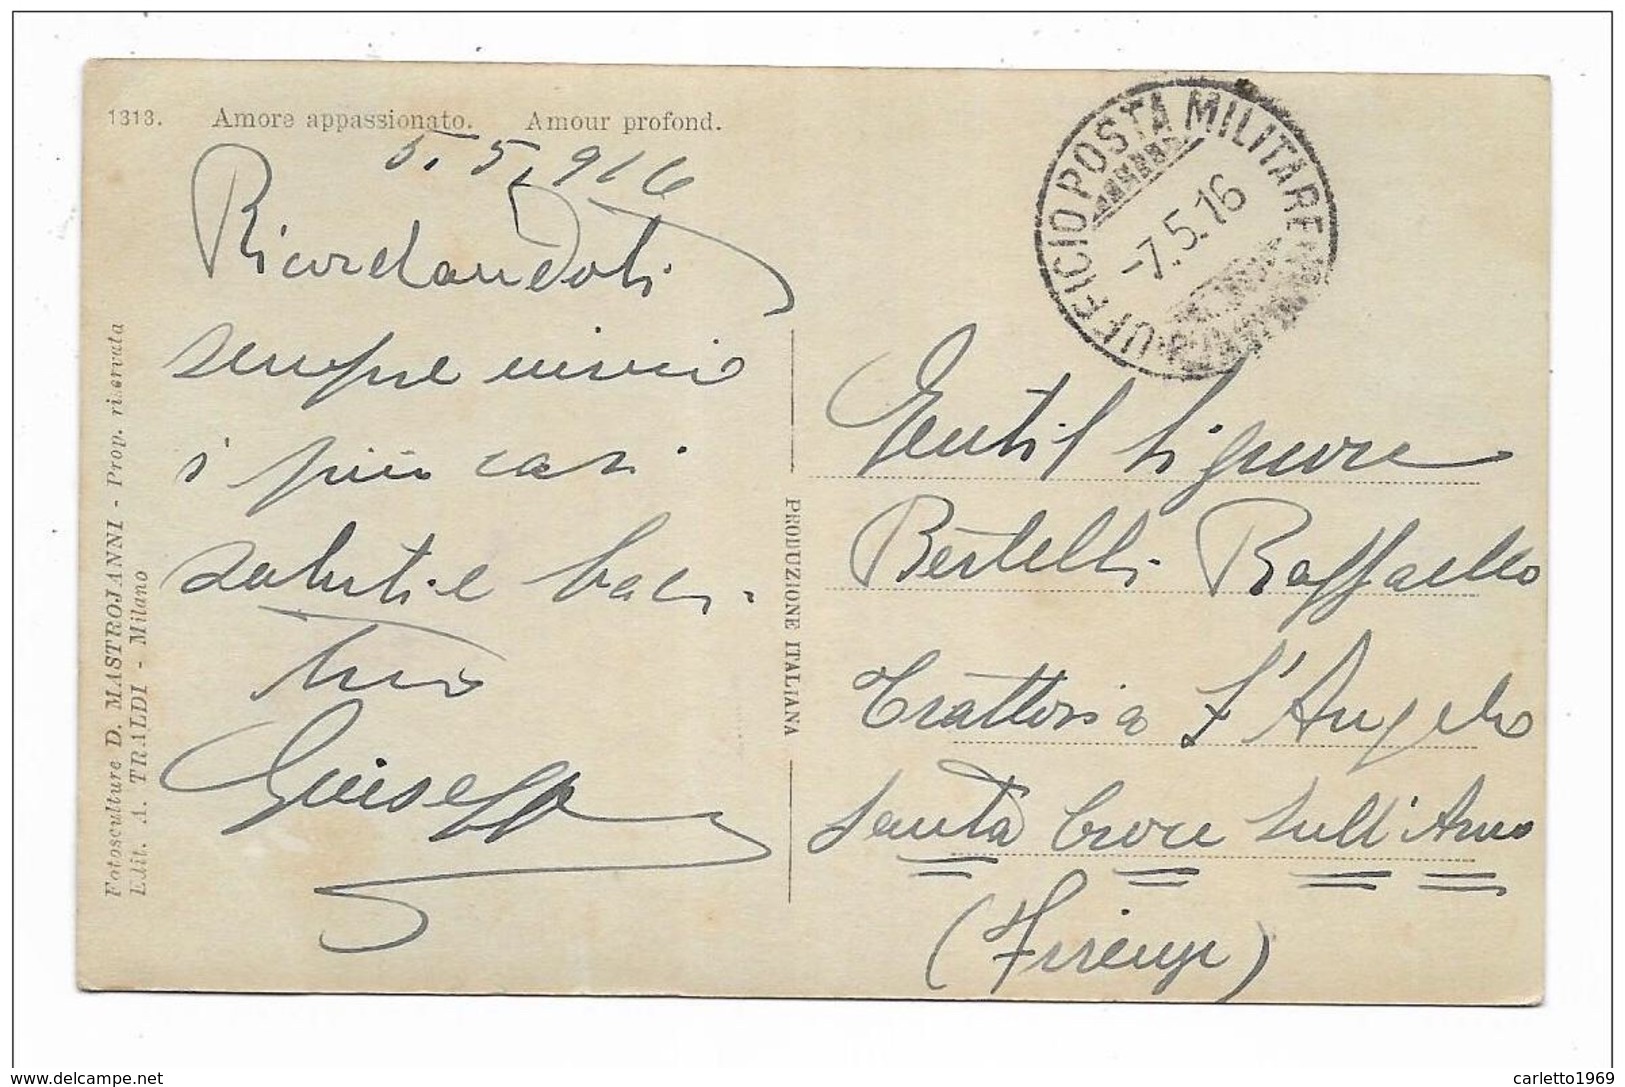 1313. Amore appassionato. Amour profond.
5.5.916
Ricordandoti
sempre invio
i più cari
saluti e baci.
Tuo
Giuseppe
Fotosculture D. MASTROJANNI - Prop. riservata
Edit. A. TRALDI - Milano
PRODUZIONE ITALIANA
UFFICIO POSTA MILITARE
-7.5.16
Gentil Signore
Bertelli Raffaello
Trattoria S'Angelo
Santa Croce Sull'Arno
(Firenze)
www.delcampe.net
carletto1969